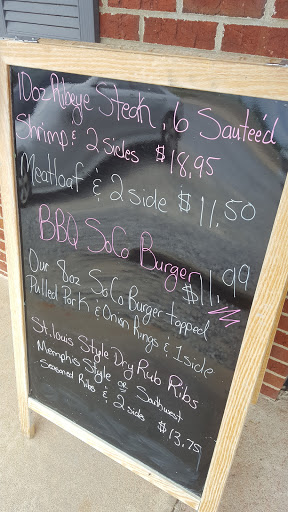 10oz Ribeye Steak, 6 Sauteéd
Shrimp & 2 sides $18.95
Meatloaf & 2 side $11.50
BBQ SoCo Burger
$11.99
Our 8oz SoCo Burger topped
Pulled Pork & Onion Rings & 1 side
St. louis Style Dry Rub Ribs
Memphis Style or Southwest
Seasoned Ribs & 2 sides $13.75